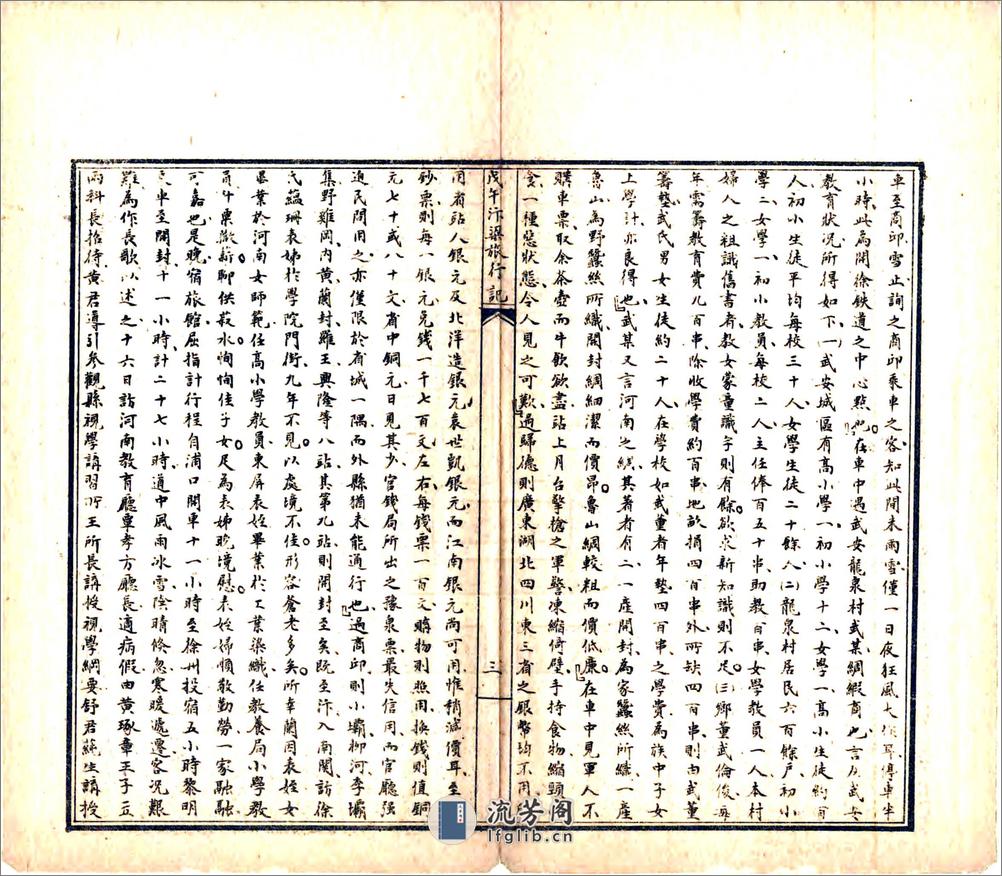 車至商邱雪止詢之商邱乘車之客知此間未雨雪僅一日夜狂風大作耳停車半
小時此為開徐鉄道之中心點也在車中遇武安龍泉村武某綢緞商也言及武安
教育狀况所得如下(一)武安城區有高小學一初小學十二女學一高小生徒約百
人初小生徒平均每校三十人女學生徒二十餘人(二)龍泉村居民六百餘戶初小
學二女學一初小教員每校二人主任俸百五十串助教百串女學教員一人本村
婦人之粗識舊書者教女蒙童識字則有餘欲求新知識則不足(三)鄉董武倫俊
年需籌教育費八百串除收學費約百串地畝捐四百串外所缺四百串則由武董
籌墊武氏男女生徒約二十人在學校如武董者年墊四百串之學費為族中子女
上學計亦良得也武某又言河南之綢其著者有二一產開封為家蠶絲所織一產
魯山為野蠶絲所織開封綢細潔而價昂魯山綢較粗而價低廉在車中見軍人不
購車票取余茶壺而牛飲欲盡站上月台擎槍之軍警凍縮倚壁手持食物縮頸
食一種惡狀態令人見之可歎過歸德則廣東湖北四川東三省之銀幣均不用
戊午汴梁旅行記
三
用者站人銀元及北洋造銀元袁世凱銀元而江南銀元尚可用惟稍減價耳至
鈔票則每一銀元兌錢一千七百文左右每錢票一百文購物則照用換錢則值銅
元七十或八十文省中銅元日見其少官錢局所出之豫泉票最失信用而官廳强
通民間用之亦僅限於省城一隅而外縣猶未能通行也過商邱則小壩柳河李壩
集野雞岡內黄蘭封羅王興隆等八站其第九站則開封至矣既至汴入南関訪徐
氏蘊珊表姊於學院門街九年不見以處境不佳形容蒼老多矣所幸蘭因表姪女
畢業於河南女師範任高小學教員東屏表姪畢業於工業染織任教養局小學教
員斗粟微薪聊供菽水恂恂佳子女足為表姊晚境慰表姪婦順敬勤勞一家融融
可嘉也是晚宿旅館屈指計行程自浦口開車十一小時至徐州投宿五小時黎明
車至開封十一小時計二十七小時途中風雨冰雪陰晴倏忽寒暖遞遷客况艱
難為作長歌以述之十六日訪河南教育廳覃孝方廳長適病假由黄琢章王子立
兩科長招待黄君導引參觀縣視學講習所王所長講授視學綱要舒君蕤生講授
流芳閣
lfglib.cn